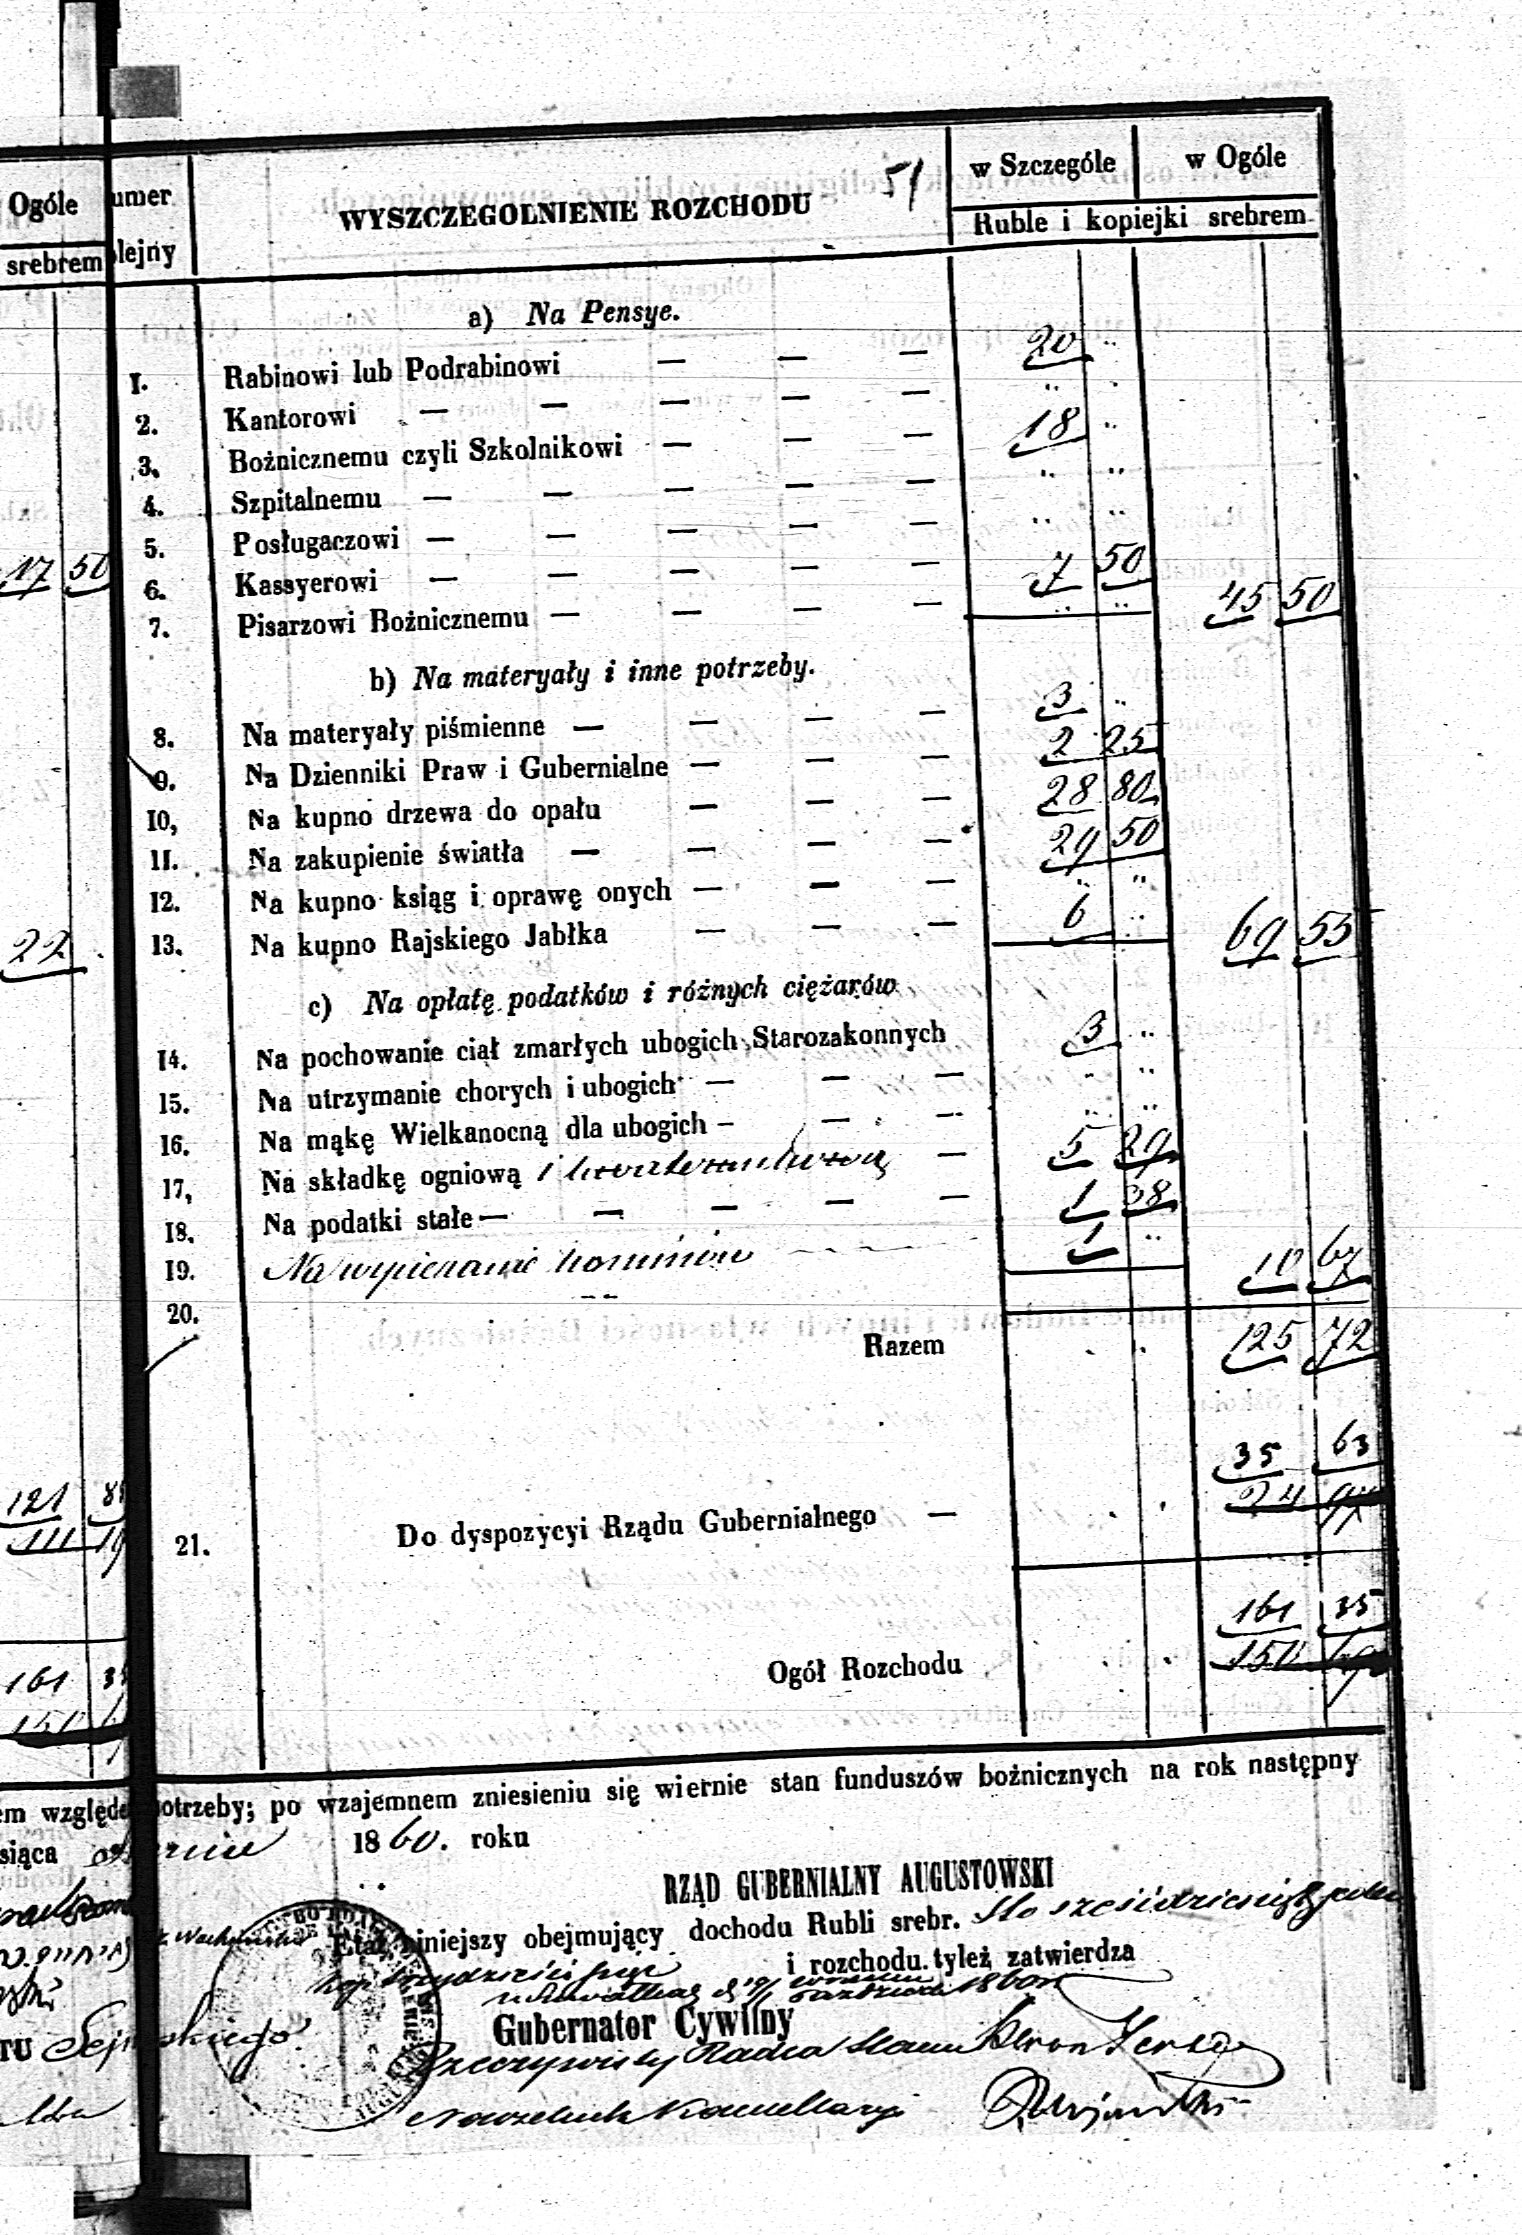 51
Ogóle
umer
olejny
WYSZCZEGOLNIENIE ROZCHODU
w Szczególe
w Ogóle
srebrem
Ruble i kopiejki srebrem
a) Na Pensye.
1. Rabinowi lub Podrabinowi — — — 20 "
2. Kantorowi — — — — — " "
3. Bożnicznemu czyli Szkolnikowi — — — 18 "
4. Szpitalnemu — — — — — " "
5. Posługaczowi — — — — — " "
17 50
6. Kassyerowi — — — — — 7 50
7. Pisarzowi Bożnicznemu — — — — " " 45 50
b) Na materyały i inne potrzeby.
8. Na materyały piśmienne — — — — 3 "
9. Na Dzienniki Praw i Gubernialne — — — 2 25
10, Na kupno drzewa do opału — — — 28 80
11. Na zakupienie światła — — — — 29 50
12. Na kupno ksiąg i oprawę onych — — — " "
22 .
13. Na kupno Rajskiego Jabłka — — — 6 " 69 55
c) Na opłatę podatków i różnych ciężarów
14. Na pochowanie ciał zmarłych ubogich Starozakonnych 3 "
15. Na utrzymanie chorych i ubogich — — — " "
16. Na mąkę Wielkanocną dla ubogich — — — " "
17, Na składkę ogniową i kwaterunkową — 5 29
18. Na podatki stałe — — — — — 1 38
19. Na wycieranie kominów 1 " 10 67
20.
Razem 125 72
35 63
121
111 19
21. Do dyspozycyi Rządu Gubernialnego — 24 97
161 35
161 35
Ogół Rozchodu 150 69
em względe potrzeby; po wzajemnem zniesieniu się wiernie stan funduszów bożnicznych na rok następny
siąca 1860. roku
RZĄD GUBERNIALNY AUGUSTOWSKI
Etat niniejszy obejmujący dochodu Rubli srebr. Sto sześćdziesiąt jeden
kop trzydzieści pięć i rozchodu tyleż zatwierdza
1860 r
Gubernator Cywilny
TU Sejneńskiego
Rzeczywisty Radca Stanu
Naczelnik Kancellaryi